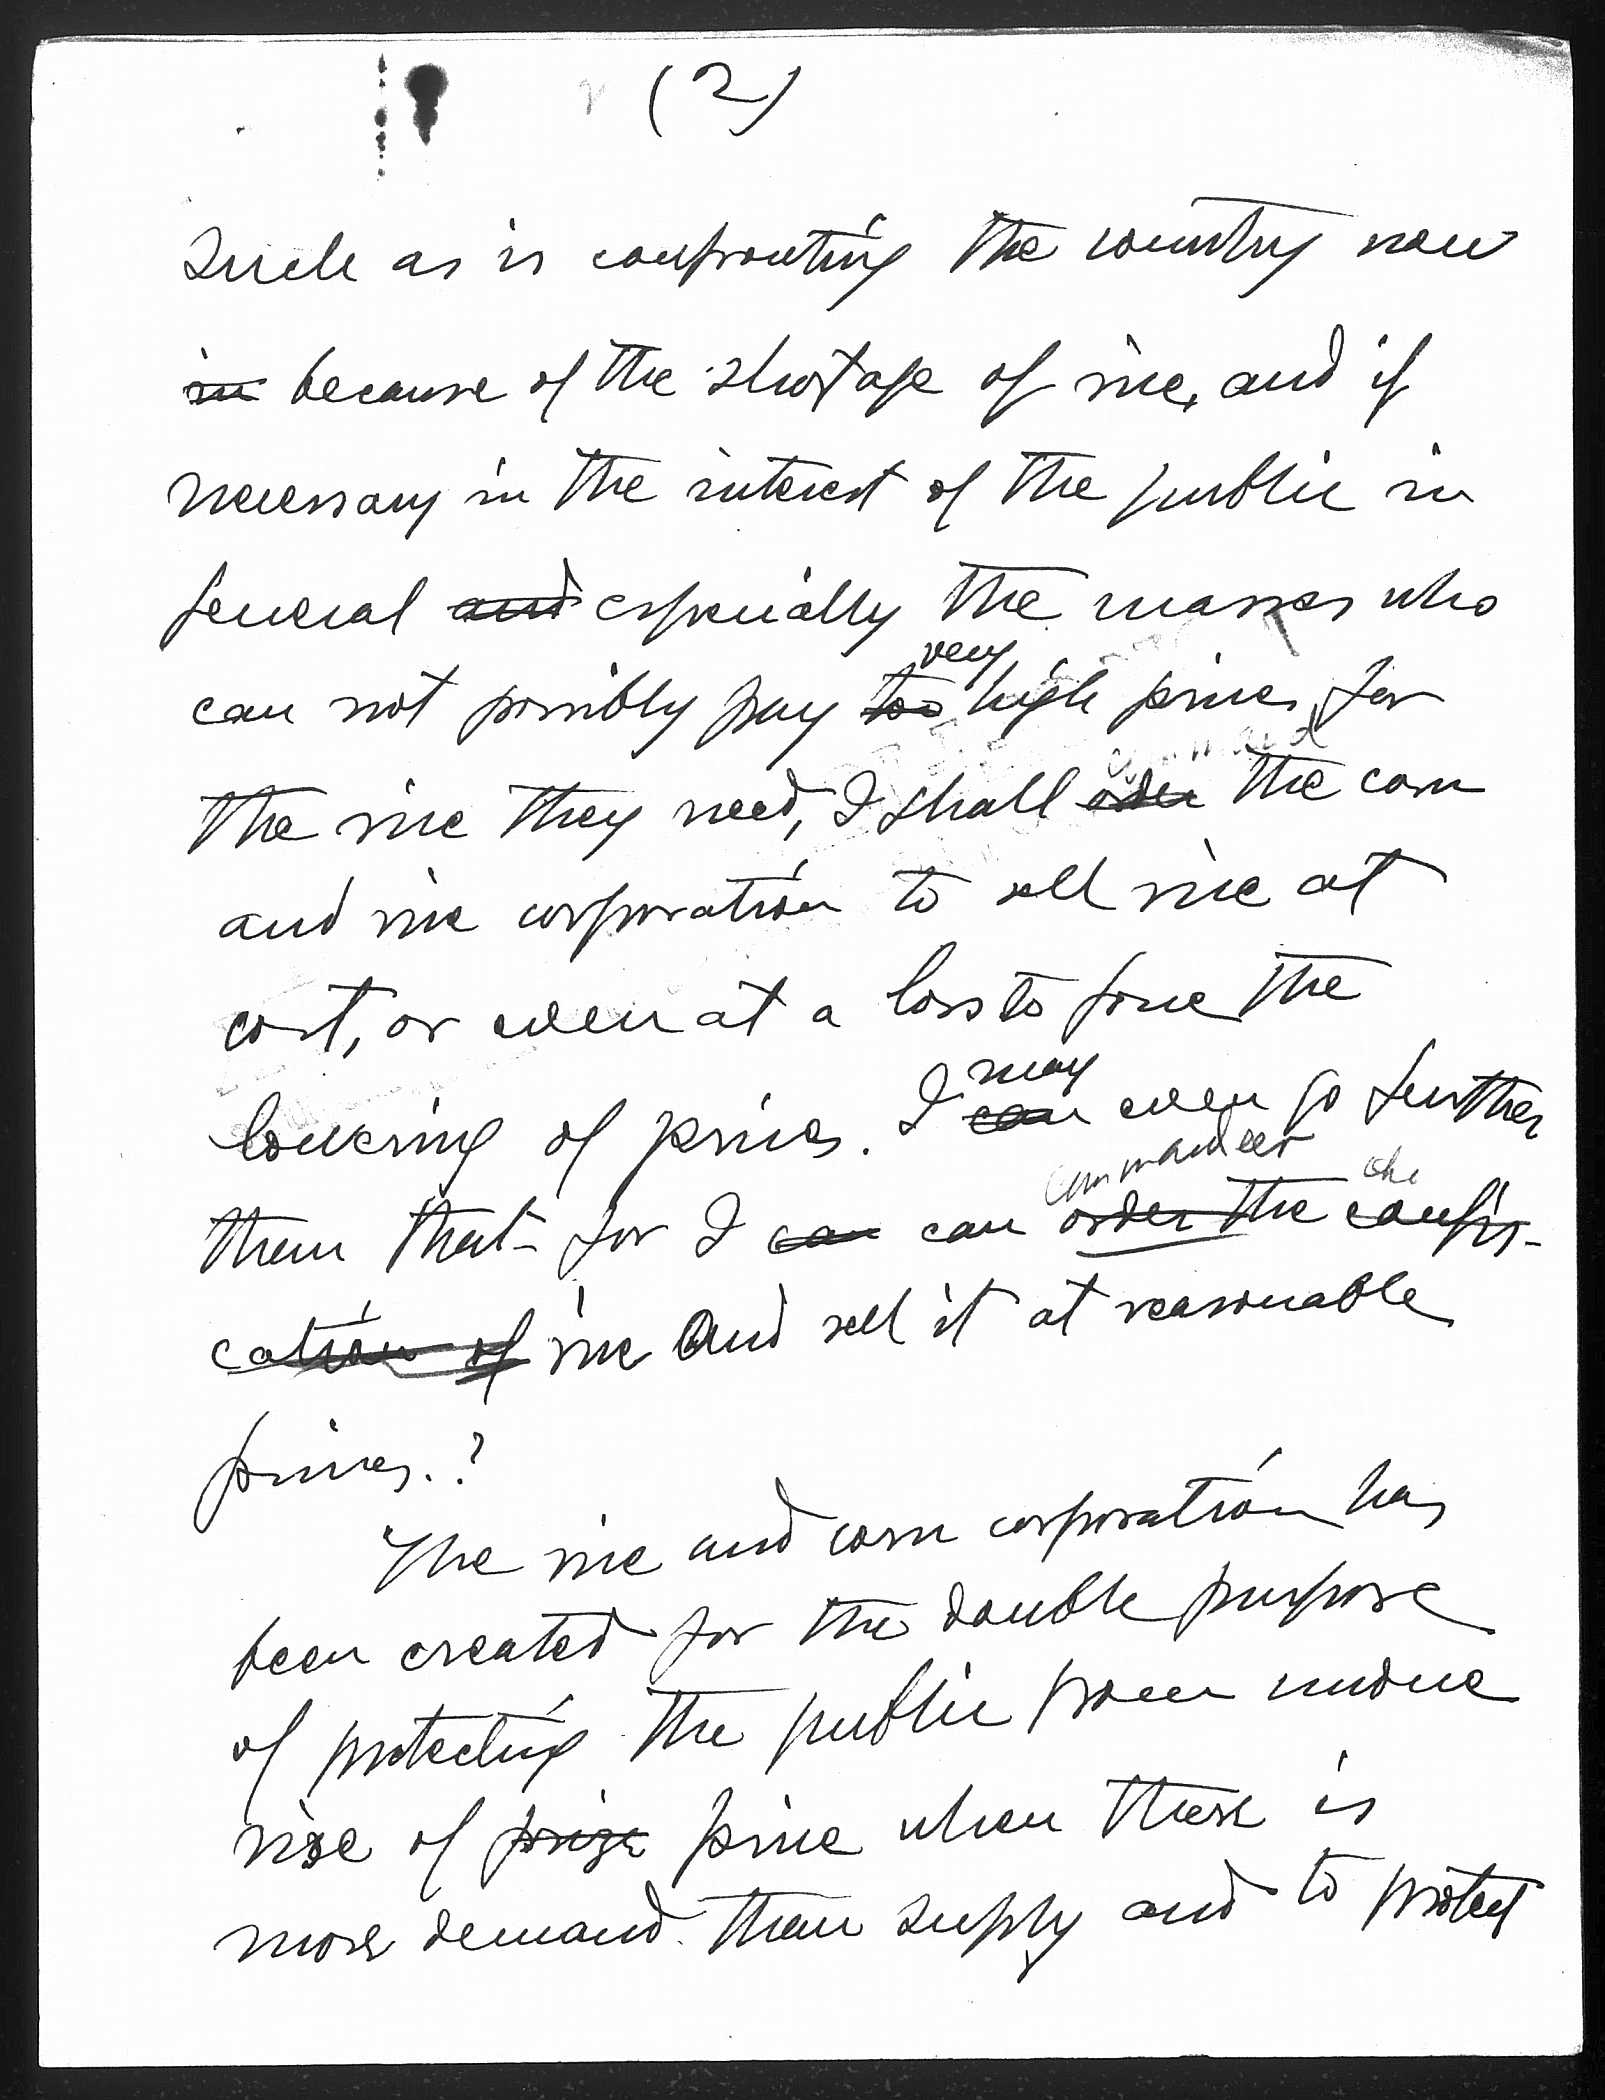 (2)
Such as is confronting the country now
in because of the shortage of rice, and if
necessary in the interest of the public in
general and especially the masses who
very
can not possibly pay too high prices for
command
the rice they need, I shall order the corn
and rice corporation to sell rice at
cost, or even at a loss to force the
may
lowering of prices. I can even go further
commandeer the
than that- for I can can order the confis-
cation of rice and sell it at reasonable
prices.?
The rice and corn corporation has
been created for the double purpose
of protecting the public from undue
rise of prize price when there is
more demand than supply and to protect